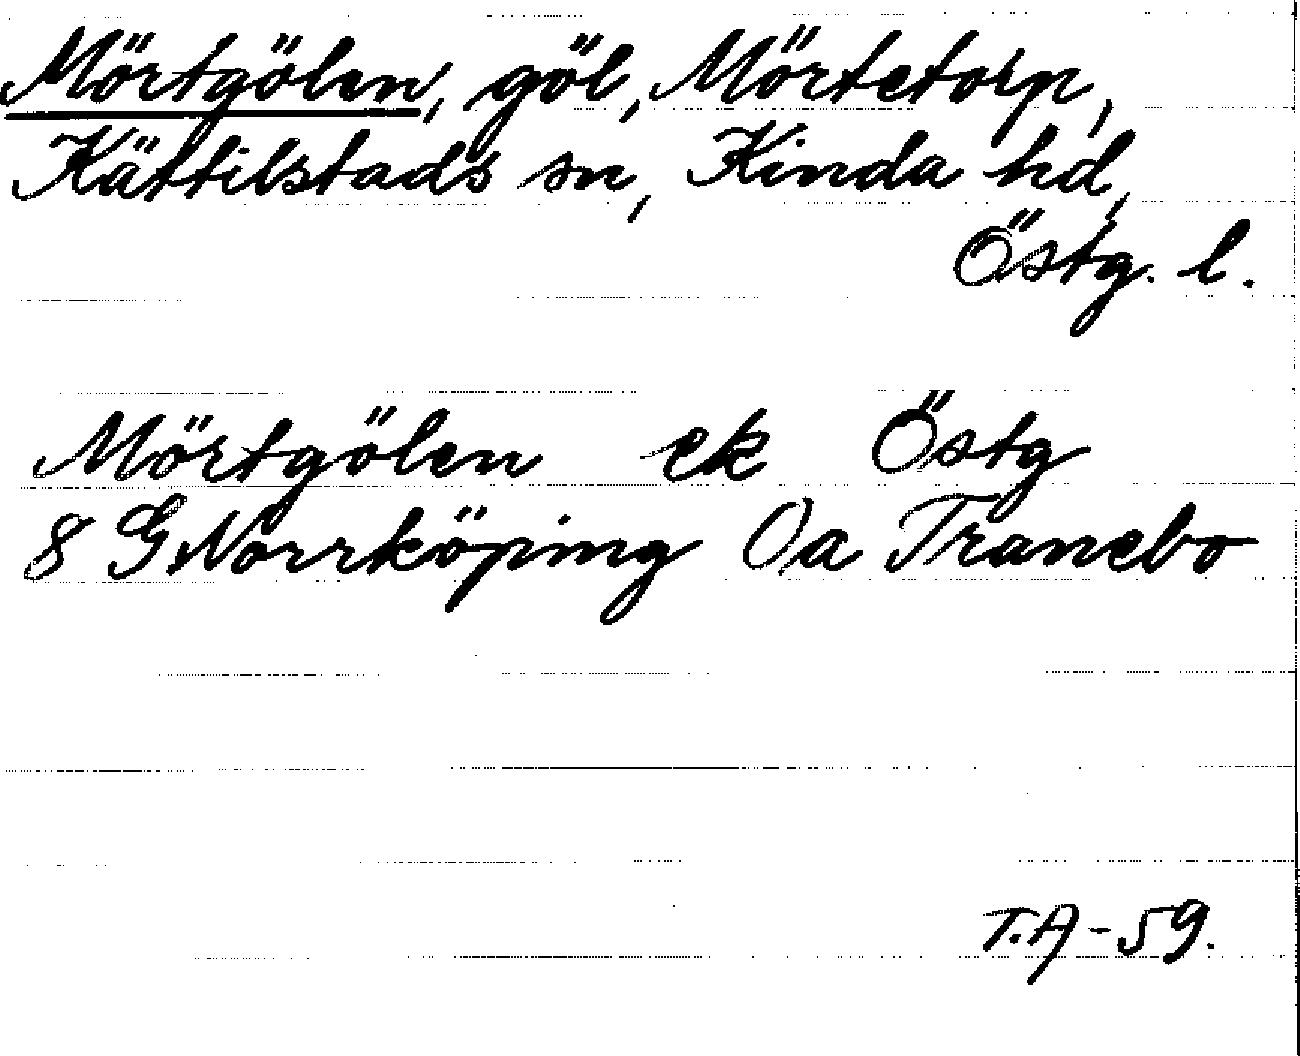 Mörtgölen, göl, Mörtetorp,
Kättilstads sn, Kinda hd,
Östg. l.
Mörtgölen ek Östg
8 G Norrköping Oa Tranebo
T.A-59.